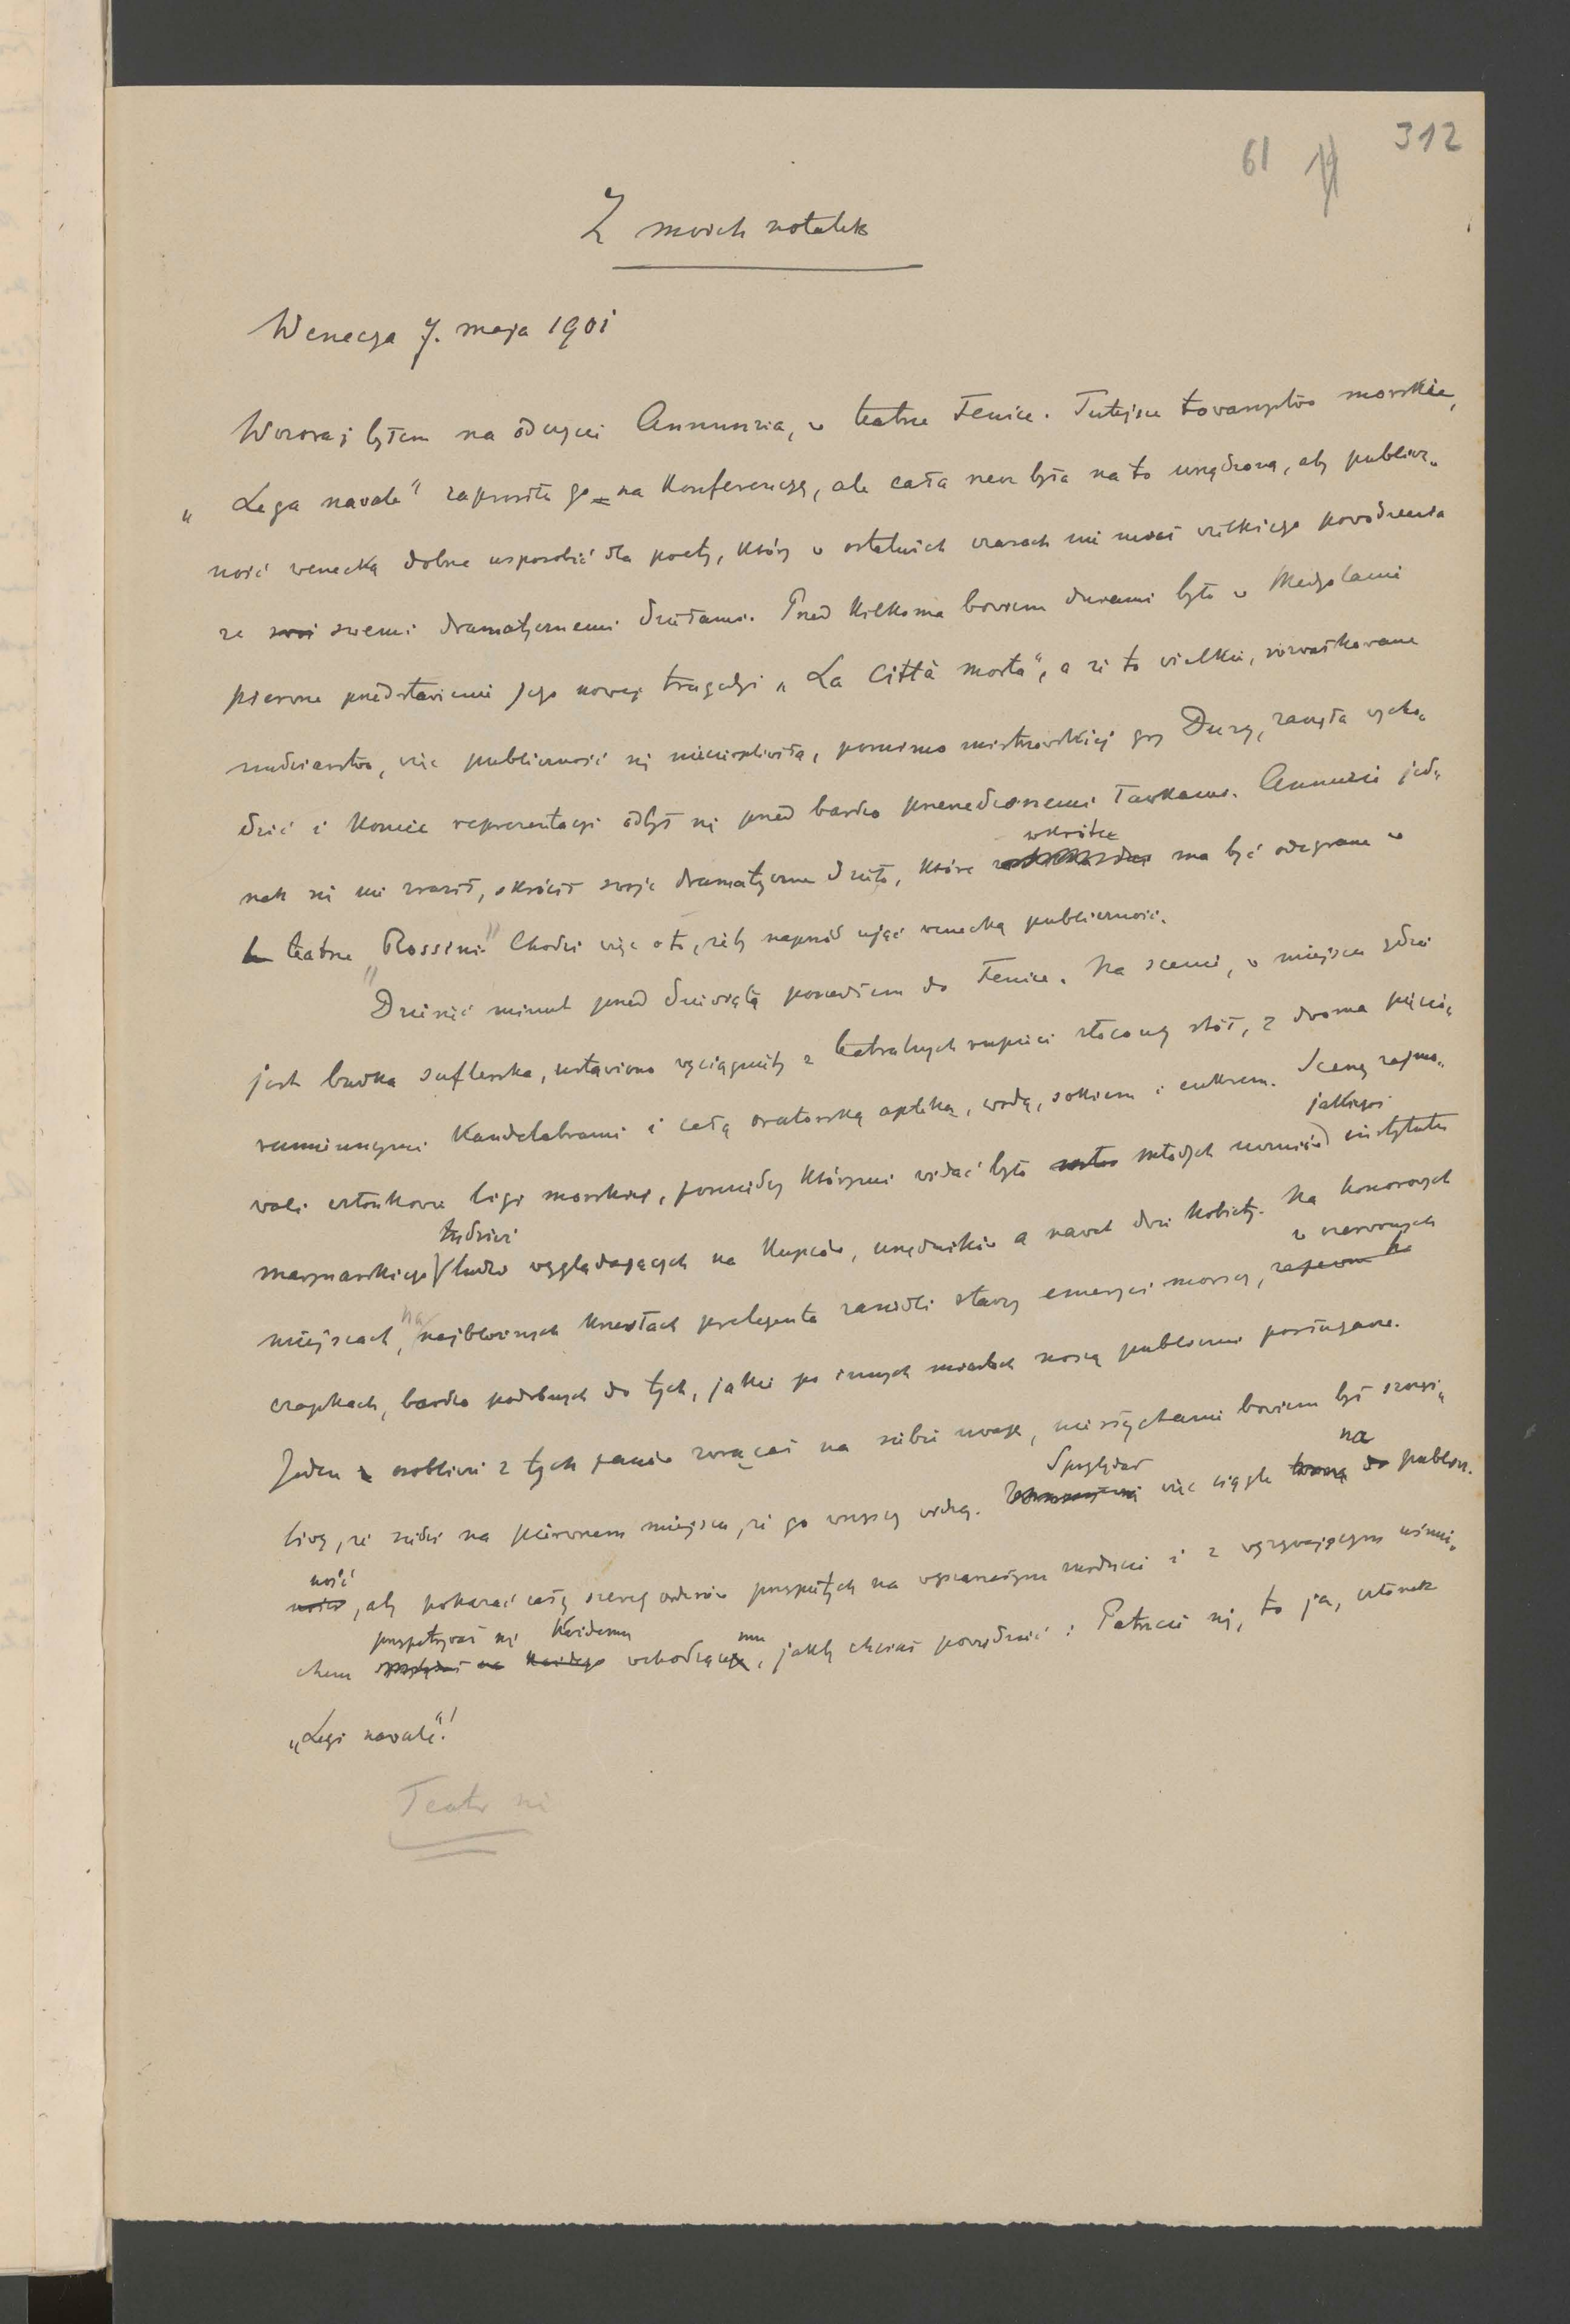 312
61
Z moich notatek
Wenecya 7. maja 1901
Wczoraj byłem na odczycie Annunzia, w teatrze Fenice. Tutejsze towarzystwo morskie,
„Lega navale" zaprosiło go na konferencyę, ale cała rzecz była na to urządzona, aby publicz„
ność wenecką dobrze usposobić dla poety, który w ostatnich czasach nie miał wielkiego powodzenia
ze swoi swemi dramatycznemi dziełami. Przed kilkoma bowiem dniami było w Medyolanie
pierwsze przedstawienie jego nowej tragedyi „La Città morta", a że to wielkie, rozwałkowane
nudziarstwo, więc publiczność się niecierpliwiła, pomimo mistrzowskiej gry Duzy, zaczęła wycho„
dzić i koniec reprezentacyi odbył się przed bardzo przerzedzonemi ławkami. Annunzio jed„
nak się nie zraził, skrócił swoje dramatyczne dzieło, które wkrótce ma być odegrane w
teatrze „Rossini" Chodzi więc o to, żeby naprzód ująć wenecką publiczność.
Dziesięć minut przed dziewiątą poszedłem do Fenice. Na scenie, w miejscu gdzie
jest budka suflerska, ustawiono wyciągnięty z teatralnych rupieci złocony stół, z dwoma pięcio„
ramiennymi kandelabrami i całą oratorską apteką, wodą, sokiem i cukrem. Scenę zajmo„
wali członkowie ligi morskiej, pomiędzy którymi widać było młodych uczniów jakiegoś instytutu
marynarskiego, tudzież ludzi wyglądających na kupców, urzędników a nawet dwie kobiety. Na honorowych
miejscach, na najbliższych krzesłach prelegenta zasiedli starzy emeryci morscy, w czerwonych
czapkach, bardzo podobnych do tych, jakie po innych miastach noszą publiczni posługacze.
Jeden z osobliwie z tych panów zwracał na siebie uwagę, niesłychanie bowiem był szczęś„
liwy, że siedzi na pierwszem miejscu, że go wszyscy widzą. Spoglądał więc ciągle na publicz„
ność, aby pokazać cały szereg orderów przypiętych na wyszarzałym surducie i z wyzywającym uśmie„
chem przypatrywał się każdemu wchodzącemu, jakby chciał powiedzieć: Patrzcie się, to ja, członek
„Legi navale"!
Teatr się